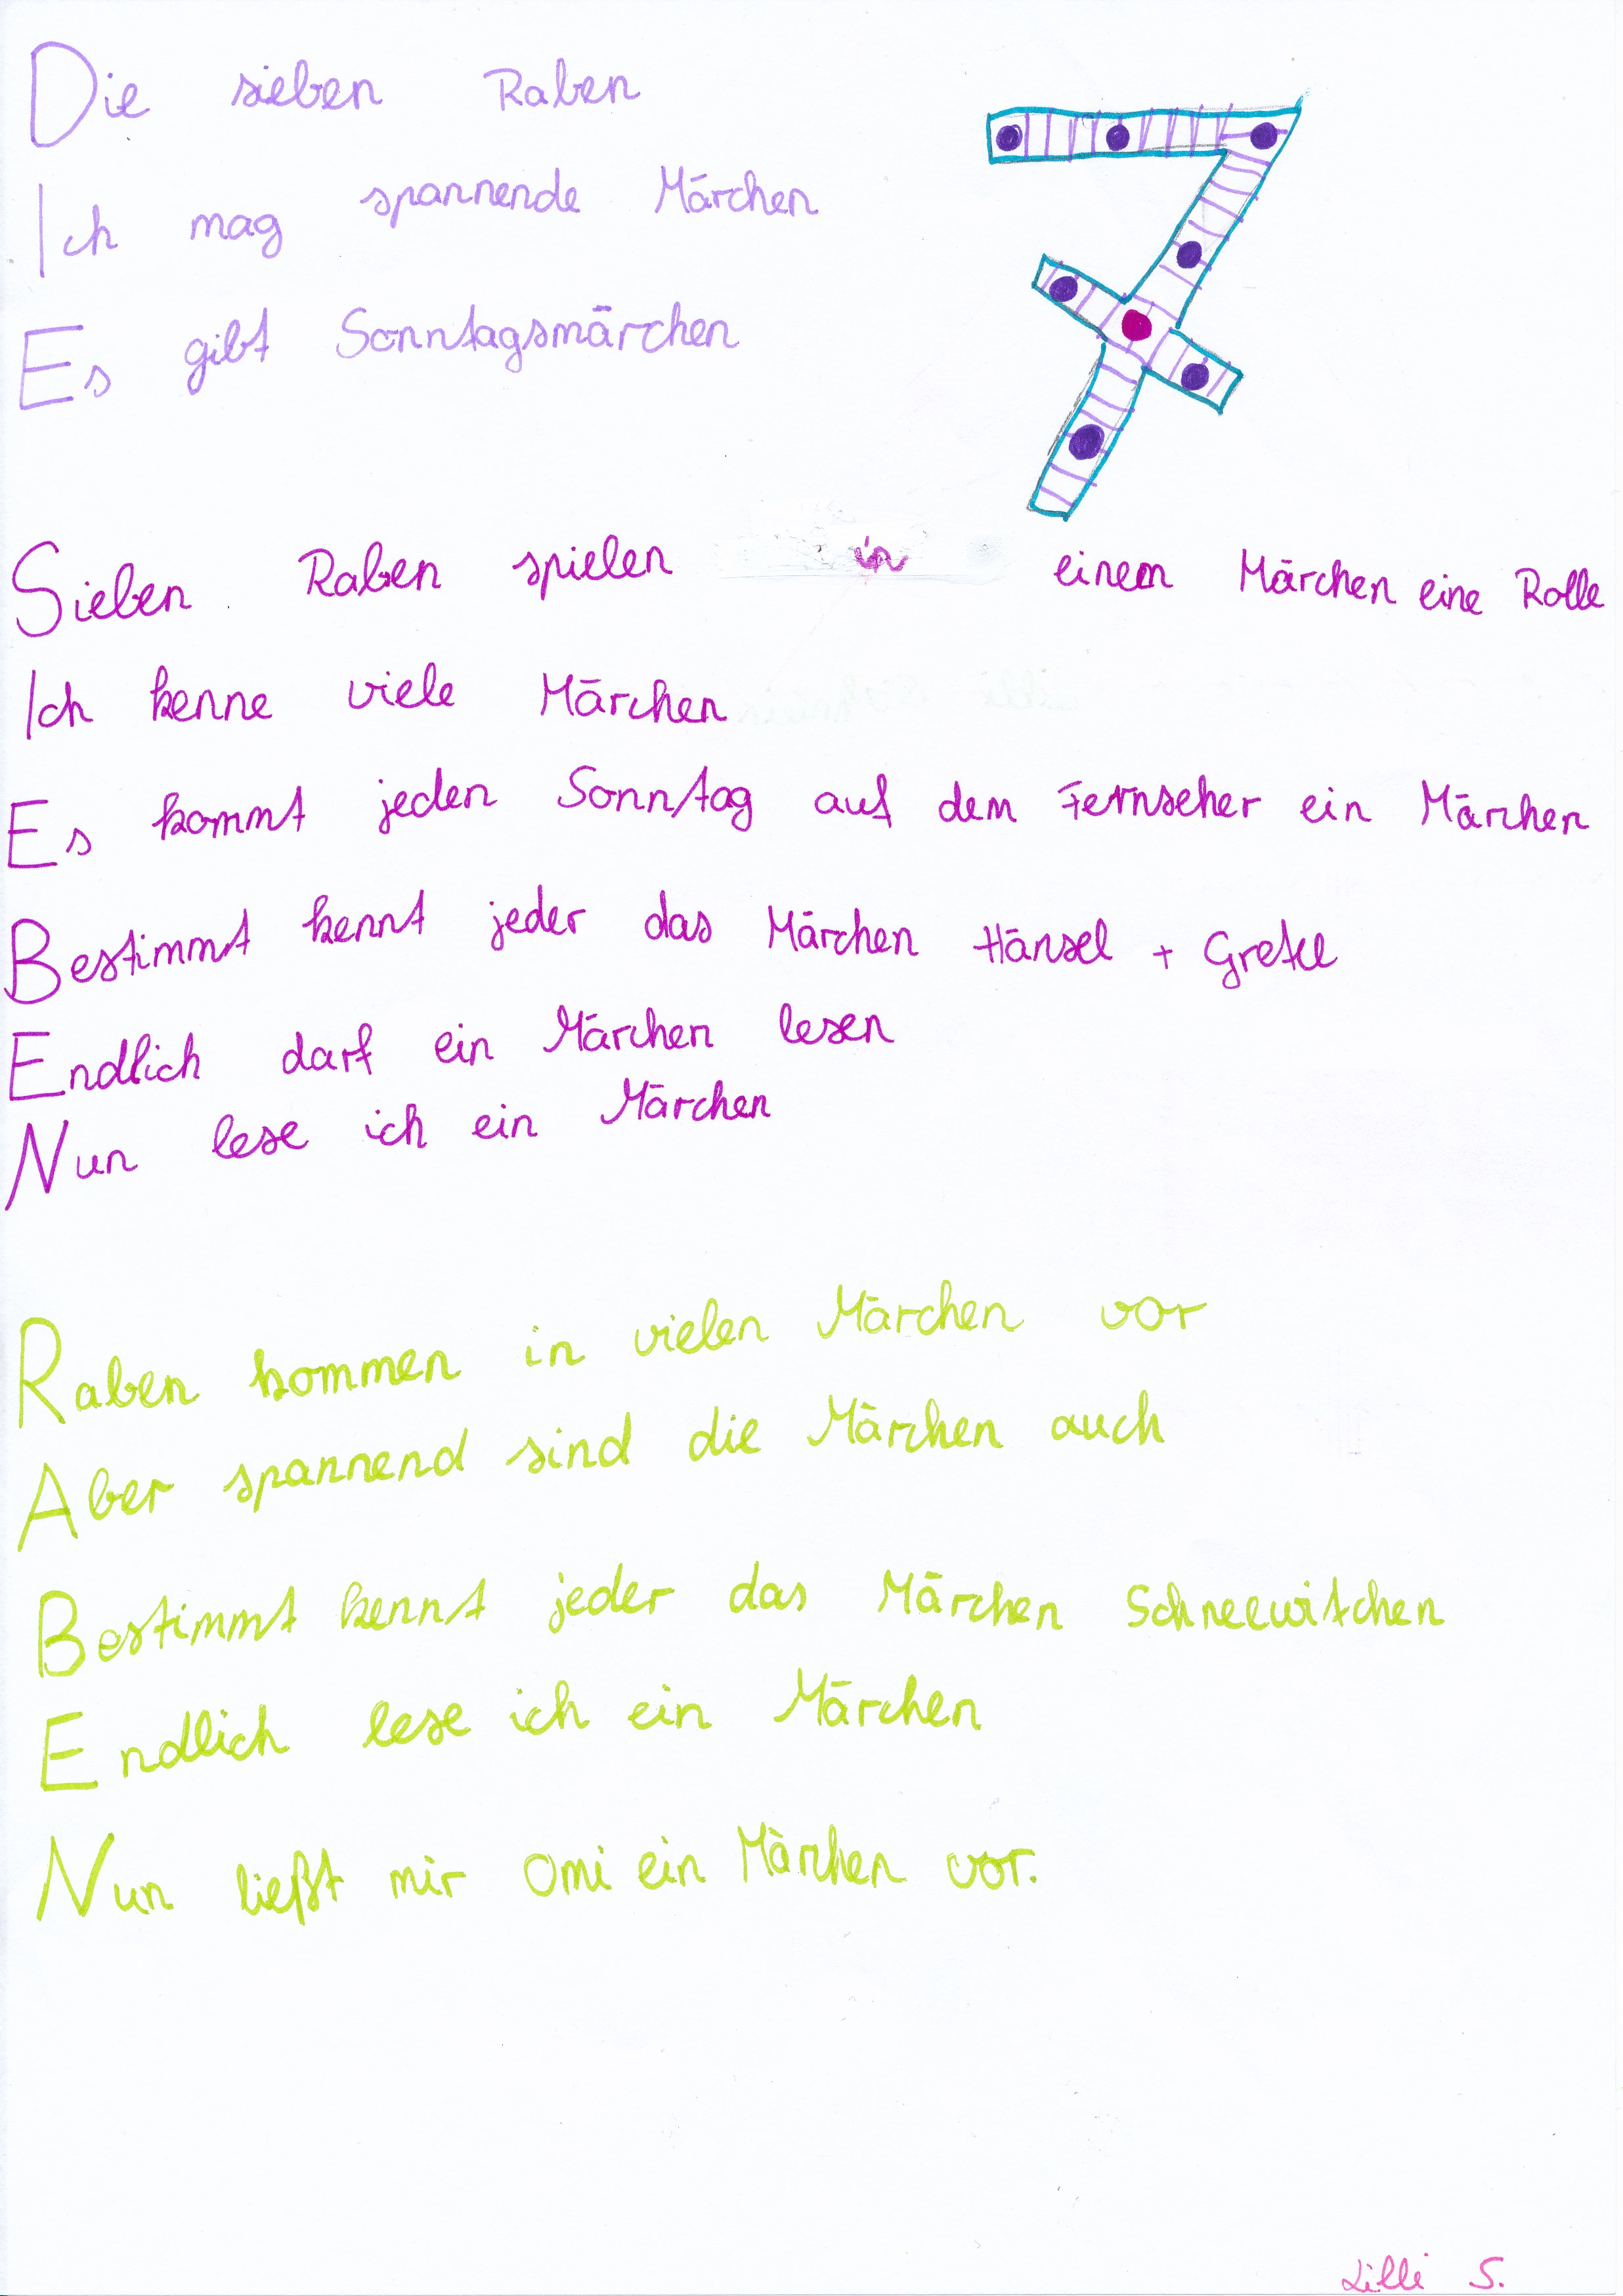 Die sieben Raben
Ich mag spannende Märchen
Es gibt Sonntagsmärchen
Sieben Raben spielen in einem Märchen eine Rolle
Ich kenne viele Märchen
Es kommt jeden Sonntag auf dem Fernseher ein Märchen
Bestimmt kennt jeder das Märchen Hänsel + Gretel
Endlich darf ein Märchen lesen
Nun lese ich ein Märchen
Raben kommen in vielen Märchen vor
Aber spannend sind die Märchen auch
Bestimmt kennt jeder das Märchen Schneewitchen
Endlich lese ich ein Märchen
Nun ließt mir Omi ein Märchen vor.
Lilli S.